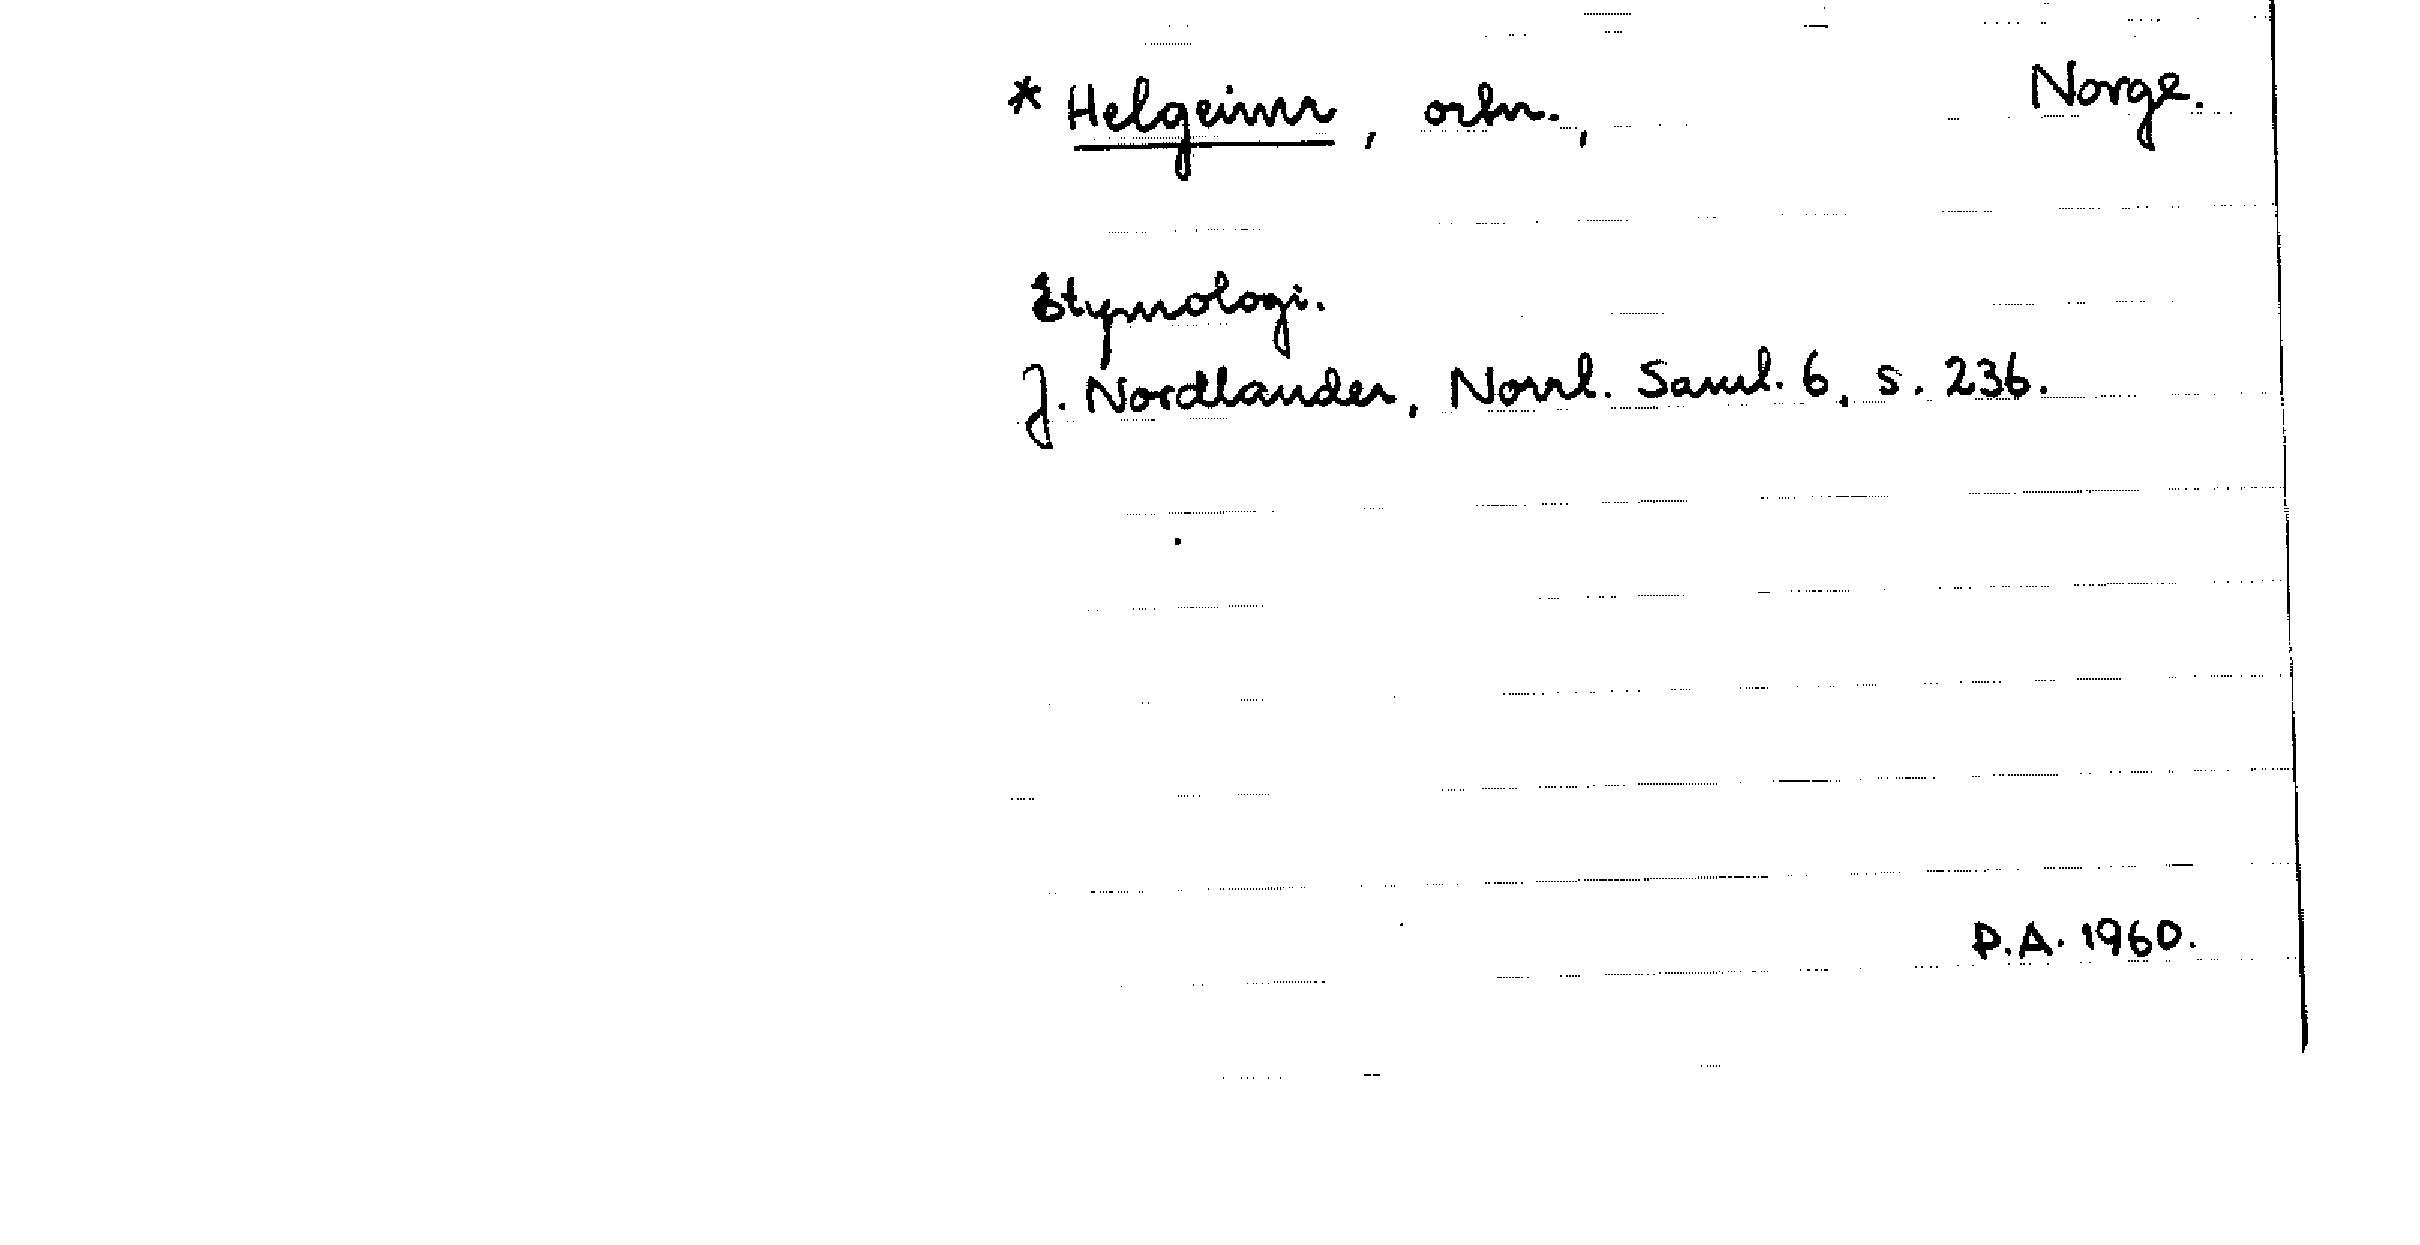 * Helgeimr, ortn., Norge.
Etymologi.
J. Nordlander, Norrl. Saml. 6, s. 236.
P.A. 1960.